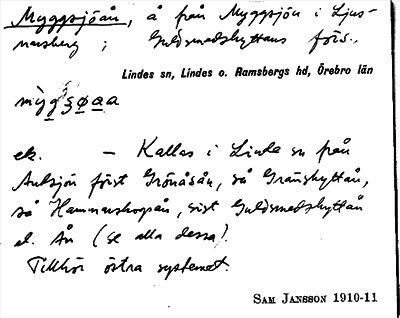 Myggsjöån, å från Myggsjön i Ljus-
narsberg; Guldsmedshyttans förs.,
Lindes sn, Lindes o. Ramsbergs hd, Örebro län
ek. – Kallas i Linde sn från
först Grönåsån, så Gränshyttån,
så Hammarskogsån, sist Guldsmedshyttån
el. Ån (se alla dessa).
Tillhör östra systemet.
SAM JANSSON 1910-11